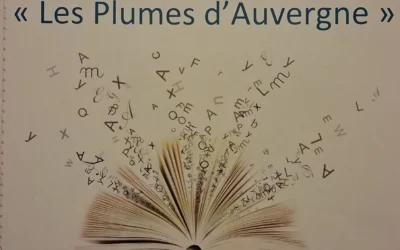 « Les Plumes d’Auvergne »